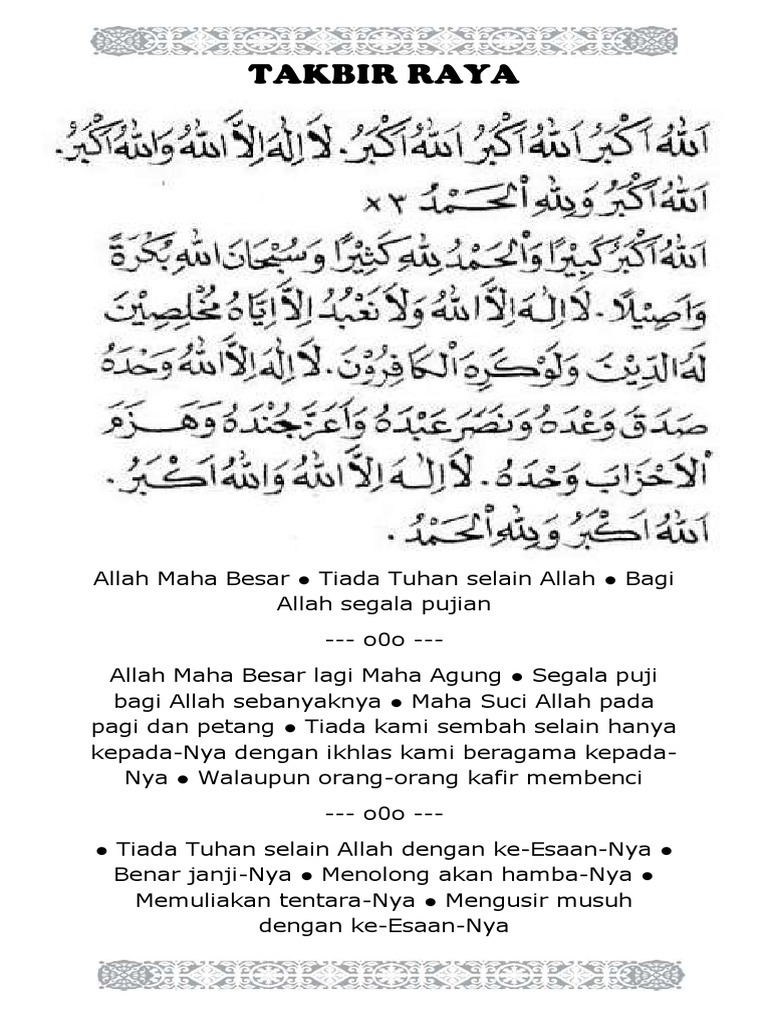 TAKBIR RAYA
اَللهُ اَكْبَرُ اَللهُ اَكْبَرُ اَللهُ اَكْبَرُ. لَا اِلٰهَ اِلَّا اللهُ وَاللهُ اَكْبَرُ.
اَللهُ اَكْبَرُ وَلِلّٰهِ الْحَمْدُ ٣×
اَللهُ اَكْبَرُ كَبِيْرًا وَالْحَمْدُ لِلّٰهِ كَثِيْرًا وَسُبْحَانَ اللهِ بُكْرَةً
وَاَصِيْلًا. لَا اِلٰهَ اِلَّا اللهُ وَلَا نَعْبُدُ اِلَّا اِيَّاهُ مُخْلِصِيْنَ
لَهُ الدِّيْنَ وَلَوْكَرِهَ الْكَافِرُوْنَ. لَا اِلٰهَ اِلَّا اللهُ وَحْدَهُ
صَدَقَ وَعْدَهُ وَنَصَرَ عَبْدَهُ وَاَعَزَّ جُنْدَهُ وَهَزَمَ
الْاَحْزَابَ وَحْدَهُ. لَا اِلٰهَ اِلَّا اللهُ وَاللهُ اَكْبَرُ.
اَللهُ اَكْبَرُ وَلِلّٰهِ الْحَمْدُ.
Allah Maha Besar ● Tiada Tuhan selain Allah ● Bagi
Allah segala pujian
--- o0o ---
Allah Maha Besar lagi Maha Agung ● Segala puji
bagi Allah sebanyaknya ● Maha Suci Allah pada
pagi dan petang ● Tiada kami sembah selain hanya
kepada-Nya dengan ikhlas kami beragama kepada-
Nya ● Walaupun orang-orang kafir membenci
--- o0o ---
● Tiada Tuhan selain Allah dengan ke-Esaan-Nya ●
Benar janji-Nya ● Menolong akan hamba-Nya ●
Memuliakan tentara-Nya ● Mengusir musuh
dengan ke-Esaan-Nya